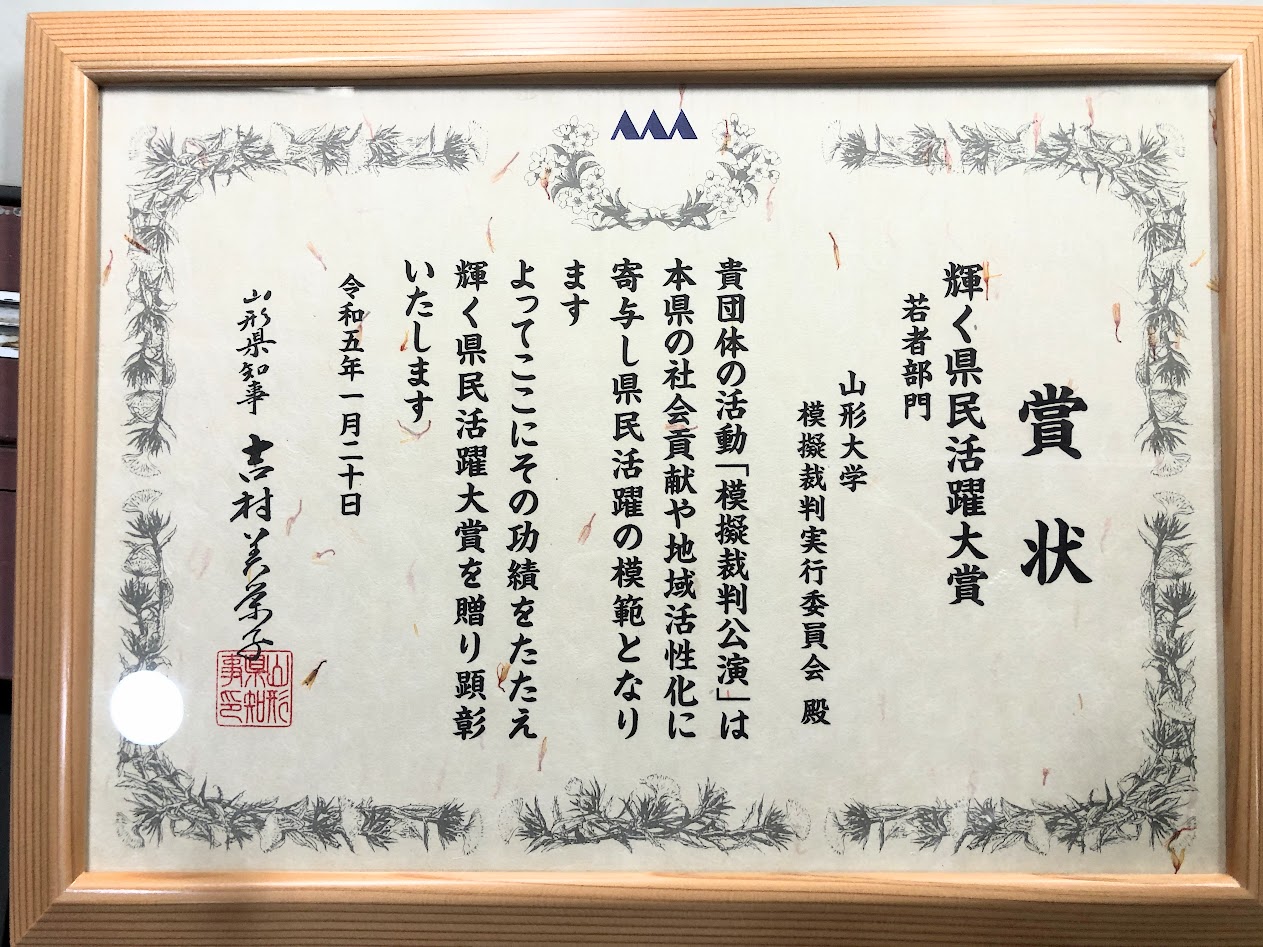 賞状
輝く県民活躍大賞
若者部門
山形大学
模擬裁判実行委員会 殿
貴団体の活動「模擬裁判公演」は
本県の社会貢献や地域活性化に
寄与し県民活躍の模範となり
ます
よってここにその功績をたたえ
輝く県民活躍大賞を贈り顕彰
いたします
令和五年一月二十日
山形県知事 吉村美栄子
山形
県知
事印